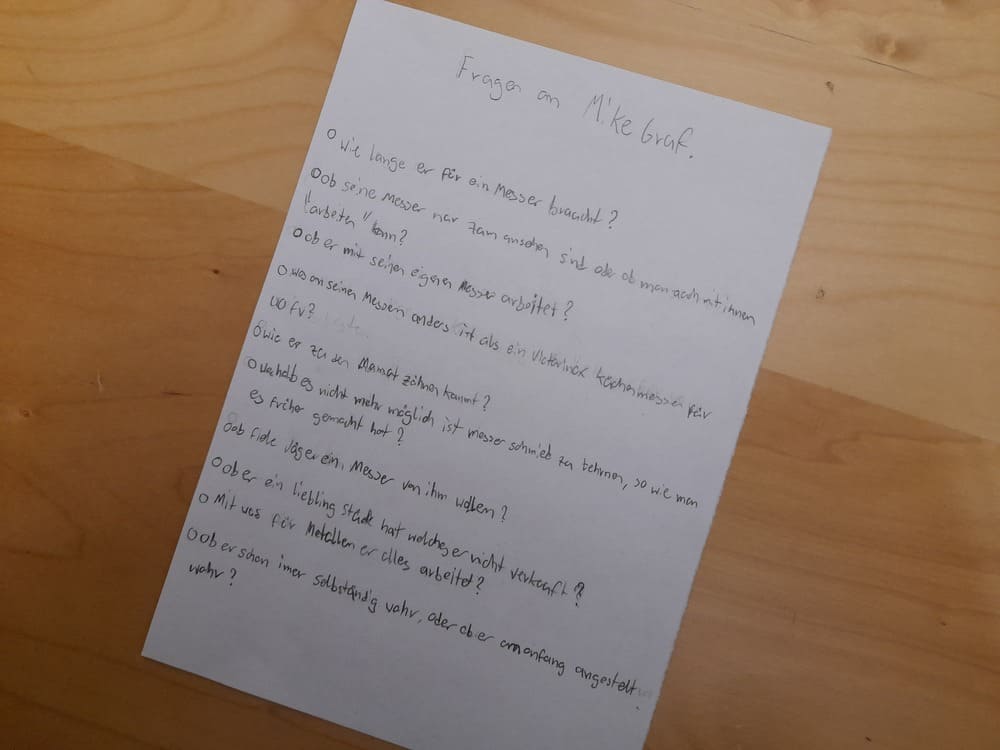 Fragen an Mike Graf.
O Wie lange er für ein Messer braucht?
O ob seine Messer nur zum ansehen sind oder ob man auch mit ihnen
"arbeiten" kann?
O ob er mit seinen eigenen Messer arbeitet?
O was an seinen Messern anders ist als ein Victorinox Küchenmesser für
fv?
O wie er zu den Mamut zähnen kommt?
O weshalb es nicht mehr möglich ist messer schmied zu lehrnen, so wie man
es früher gemacht hat?
O ob fiele Jäger ein, Messer von ihm wollen?
O ob er ein liebling stück hat welches er nicht verkauft?
O Mit was für Metallen er alles arbeitet?
O ob er schon imer selbständig wahr, oder ob er am anfang angestelt
wahr?